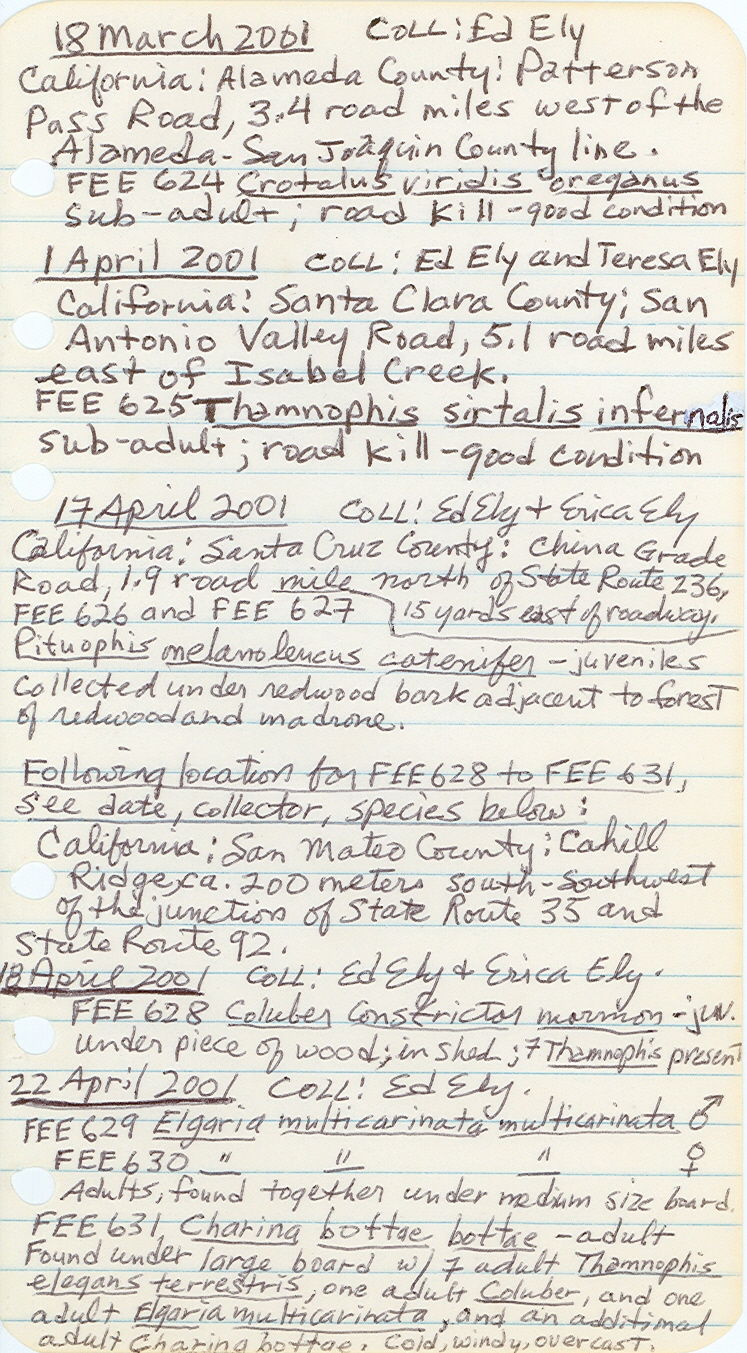 18 March 2001 COLL: Ed Ely
California: Alameda County: Patterson
Pass Road, 3.4 road miles west of the
Alameda-San Joaquin County line.
FEE 624 Crotalus viridis oreganus
sub-adult; road kill-good condition
1 April 2001 COLL: Ed Ely and Teresa Ely
California: Santa Clara County; San
Antonio Valley Road, 5.1 road miles
east of Isabel Creek.
FEE 625 Thamnophis sirtalis infernalis
sub-adult; road kill-good condition
17 April 2001 COLL: Ed Ely + Erica Ely
California: Santa Cruz County: China Grade
Road, 1.9 road mile north of State Route 236,
FEE 626 and FEE 627 15 yards east of roadway.
Pituophis melanoleucus catenifer - juveniles
collected under redwood bark adjacent to forest
of redwood and madrone.
Following location for FEE 628 to FEE 631,
see date, collector, species below:
California: San Mateo County: Cahill
Ridge, ca. 200 meters south-southwest
of the junction of State Route 35 and
State Route 92.
18 April 2001 COLL: Ed Ely & Erica Ely.
FEE 628 Coluber constrictor mormon - juv.
under piece of wood; in shed; 7 Thamnophis present
22 April 2001 COLL: Ed Ely.
FEE 629 Elgaria multicarinata multicarinata ♂
FEE 630 " " " ♀
Adults, found together under medium size board.
FEE 631 Charina bottae bottae - adult
Found under large board w/ 7 adult Thamnophis
elegans terrestris, one adult Coluber, and one
adult Elgaria multicarinata, and an additional
adult Charina bottae. Cold, windy, overcast.